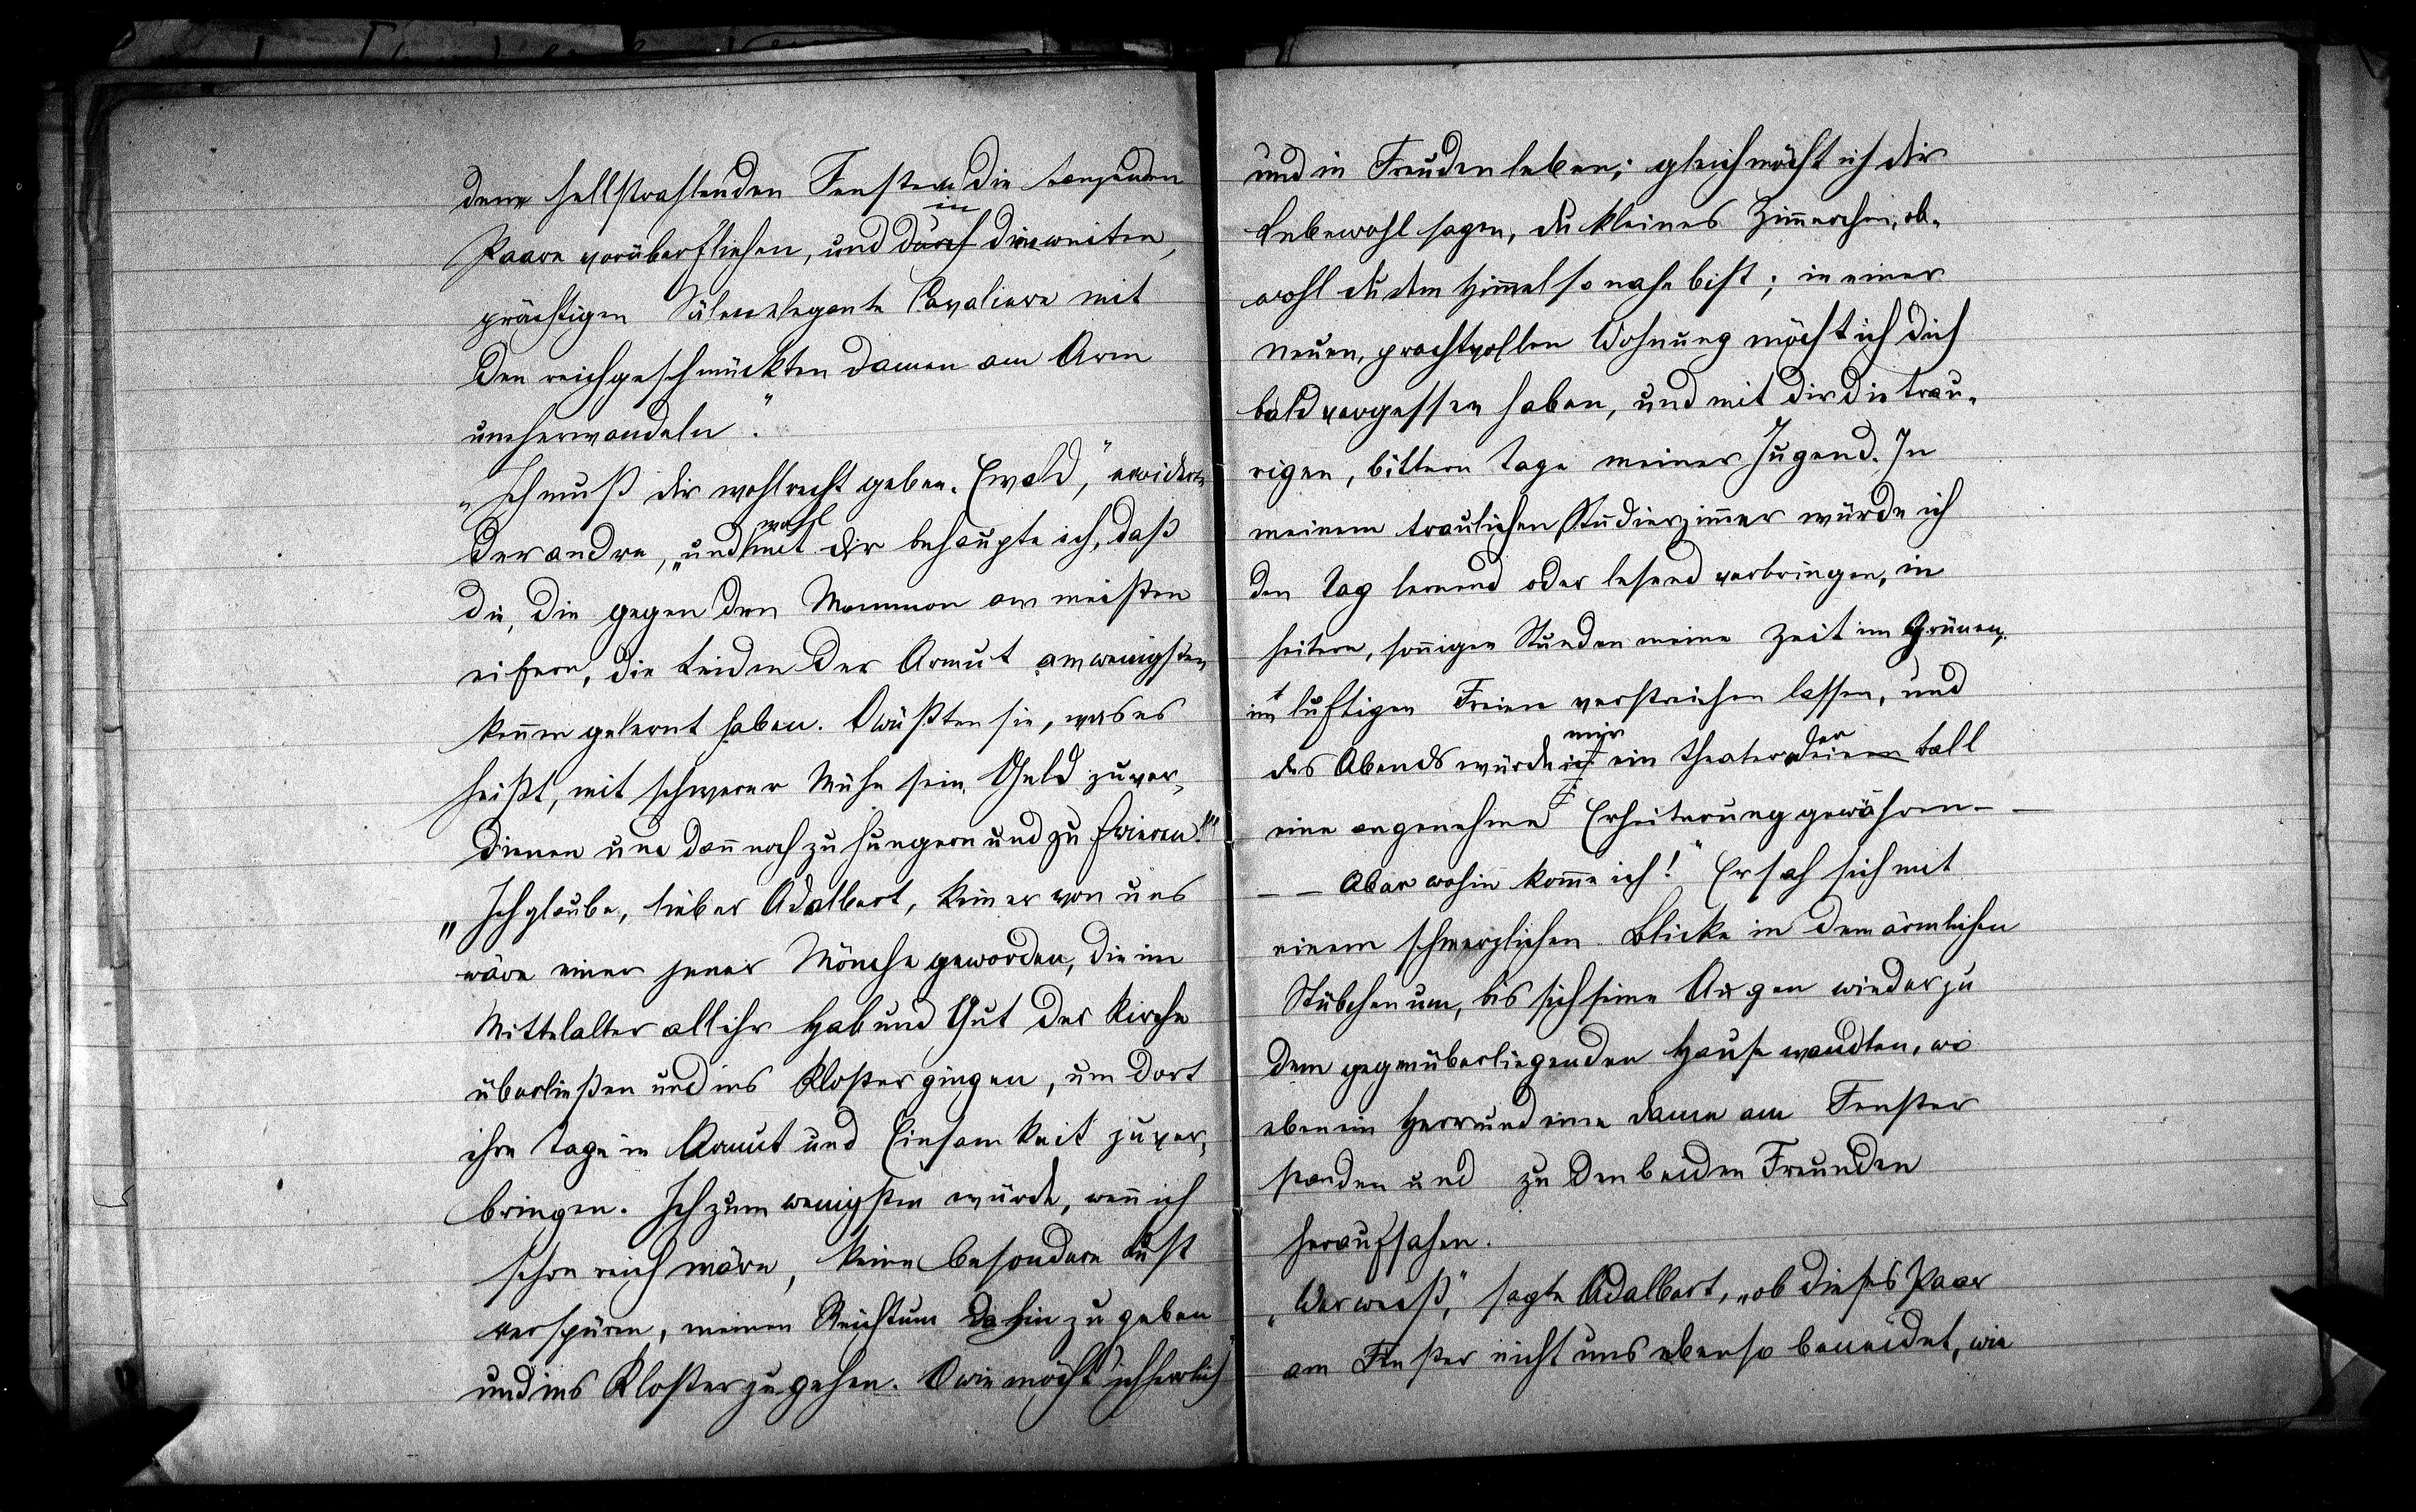 den hellstrahlenden Fenstern die tanzenden
in
Paare vorüberfliehen, und durch den weiten,
prächtigen Sälen elegante Cavaliere mit
den reichgeschmückten Damen am Arm
umherwandeln."
"Ich muß dir wohl recht geben, Ewald," erwiderte
wohl
der andre, "und mit dir behaupte ich, daß
die, die gegen den Mammon am meisten
eifern, die Leiden der Armut am wenigsten
kennen gelernt haben. O wüßten sie, was es
heißt, mit schwerer Mühe sein Geld zu ver-
dienen und dann noch zu hungern und zu frieren!"
"Ich glaube, lieber Adalbert, keiner von uns
wäre einer jener Mönche geworden, die im
Mittelalter all ihr Hab und Gut der Kirche
überließen und ins Kloster gingen, um dort
ihre Tage in Armut und Einsamkeit zu ver-
bringen. Ich zum wenigsten würde, wenn ich
schon reich wäre, keine besondere Lust
verspüren, meinen Reichtum dahin zu geben
und ins Kloster zu gehen. O wie möcht ich herrlich
und in Freuden leben; gleich möcht ich dir
Lebewohl sagen, du kleines Zimmerchen, ob-
wohl du dem Himmel so nahe bist; in einer
neuen, prachtvollen Wohnung möcht ich dich
bald vergessen haben, und mit dir die trau-
rigen, bittern Tage meiner Jugend. In
meinem traulichen Studierzimmer würde ich
den Tag lernend oder lesend verbringen, in
heitern, sonnigen Stunden meine Zeit im Grünen,
im luftigen Freien verstreichen lassen, und
mir der
des Abends würde ich ein Theater oder einen Ball
eine angenehme Erheiterung gewähren – –
– – Aber wohin komme ich!" Er sah sich mit
einem schmerzlichen Blicke in dem ärmlichen
Stübchen um, bis sich seine Augen wieder zu
dem gegenüberliegenden Hause wandten, wo
eben ein Herr und eine Dame am Fenster
standen und zu den beiden Freunden
heraufsahen.
"Wer weiß," sagte Adalbert, "ob dieses Paar
am Fenster nicht uns ebenso beneidet, wie